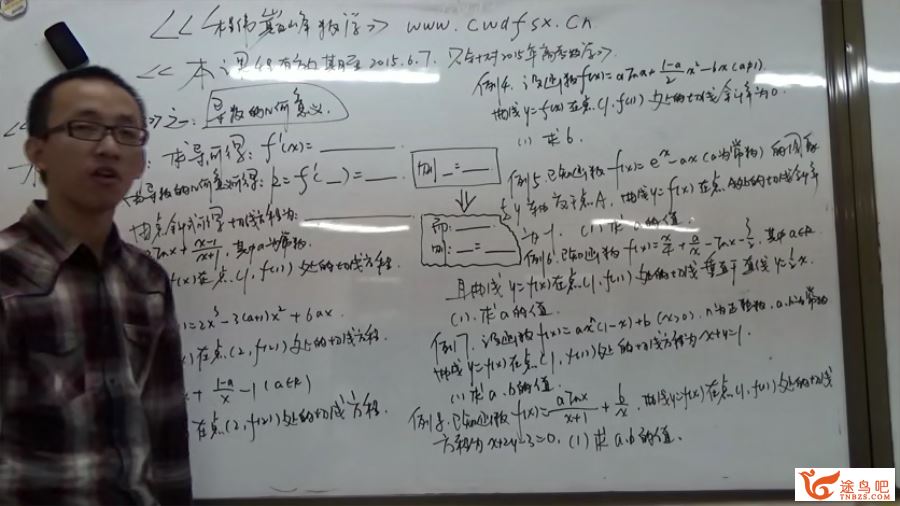 <<程伟巅峰数学>> www.cwdfsx.cn
<<本课程有效期至2015.6.7. 只针对2015年高考数学>>.
之一: 导数的几何意义.
求导可得: f'(x)=
由导数的几何意义可得: k=f'( )=
由点斜式可得切线方程为:
lnx+\frac{x-1}{x+1}, 其中a为常数.
f(x)在点(1,f(1))处的切线方程.
)=2x³-3(a+1)x²+6ax.
)在点(2,f(2))处的切线方程.
+\frac{1-a}{x}-1(a∈R)
在点(2,f(2))处的切线方程.
则 =
而:
则: =
例4. 设函数f(x)=alnx+\frac{1-a}{2}x²-bx(a≠1).
曲线y=f(x)在点(1,f(1))处的切线斜率为0.
(1) 求b.
例5. 已知函数f(x)=eˣ-ax(a为常数)的图象
与y轴交于点A, 曲线y=f(x)在点A处的切线斜率
为-1. (1) 求a的值.
例6. 已知函数f(x)=\frac{x}{4}+\frac{a}{x}-lnx-\frac{3}{2}, 其中a∈R.
且曲线y=f(x)在点(1,f(1))处的切线垂直于直线y=\frac{1}{2}x.
(1). 求a的值.
例7. 设函数f(x)=axⁿ(1-x)+b(x>0), n为正整数, a,b为常数
曲线y=f(x)在点(1,f(1))处的切线方程为x+y=1.
(1) 求a.b的值.
例8. 已知函数f(x)=\frac{alnx}{x+1}+\frac{b}{x}, 曲线y=f(x)在点(1,f(1))处的切线
方程为x+2y-3=0. (1) 求a.b的值.
途鸟吧
TNBZS.COM